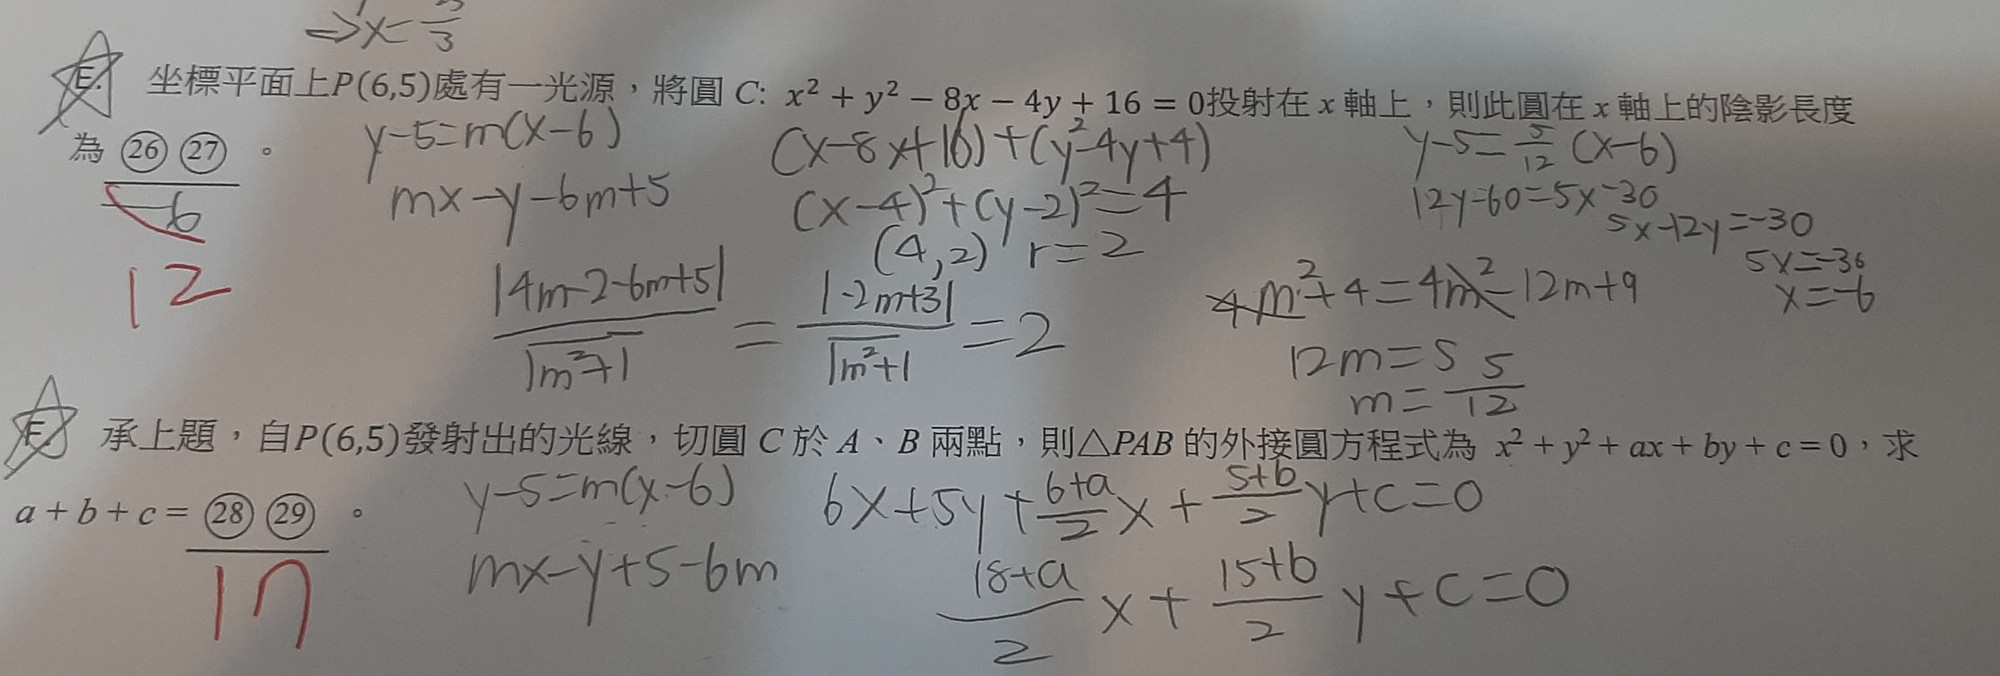 ⇒x=/3
E. 坐標平面上P(6,5)處有一光源，將圓 C: x² + y² − 8x − 4y + 16 = 0投射在 x 軸上，則此圓在 x 軸上的陰影長度
為 ㉖ ㉗ 。
y-5=m(x-6)
mx-y-6m+5
(x-8x+16)+(y²-4y+4)
(x-4)²+(y-2)²=4
(4,2) r=2
|4m-2-6m+5|/√m²+1 = |-2m+3|/√m²+1 = 2
y-5=5/12(x-6)
12y-60=5x-30
5x-12y=-30
5x=-30
x=-6
4m²+4=4m²-12m+9
12m=5
m=5/12
-6
12
F. 承上題，自P(6,5)發射出的光線，切圓 C 於 A、B 兩點，則△PAB 的外接圓方程式為 x² + y² + ax + by + c = 0，求
a + b + c = ㉘ ㉙ 。
17
y-5=m(x-6)
mx-y+5-6m
6x+5y+6+a/2x+5+b/2y+c=0
18+a/2x+15+b/2y+c=0